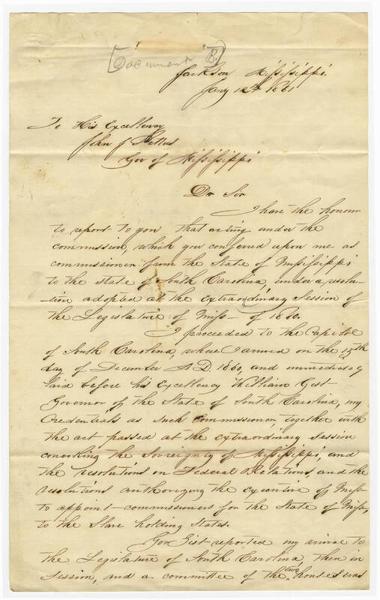 [Document 8]
Jackson Mississippi
Jany 1861
To His Excellency
John J Pettus
Gov of Mississippi
Dr Sir
I have the honour
to report to you that acting under the
commission, which you conferred upon me as
commissioner from the State of Mississippi
to the State of South Carolina, under a resolu-
tion adopted at the extraordinary Session of
the Legislature of Miss of 1860.
I proceeded to the Capitol
of South Carolina, where I arrived on the
day of December A.D. 1860, and immediately
laid before his Excellency William Gist
Governor of the State of South Carolina, my
Credentials as Such Commissioner, together with
the act passed at the extraordinary Session
convening the Sovereignty of Mississippi, and
the resolutions on Federal Relations, and the
resolutions authorizing the Executive of Miss
to appoint commissioners for the State of Miss,
to the Slave holding States.
Gov Gist reported my arrival to
the Legislature of South Carolina, then in
Session, and a committee of the two houses was